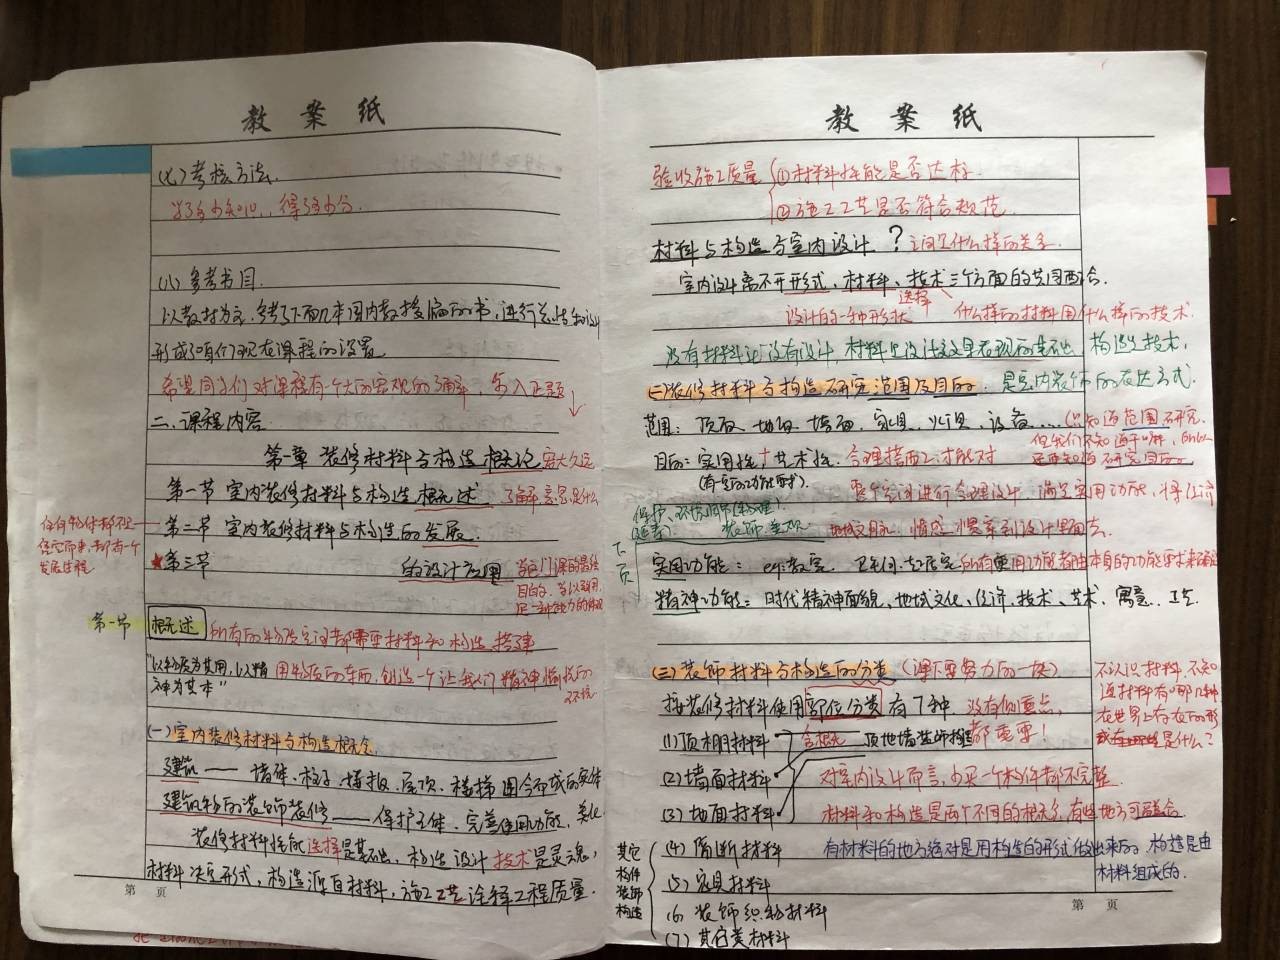 教案纸
(七)考核方法
(八)参考书目
以教材为主,参考了下面几本国内教授编的书,进行总结和设计
形成了咱们现在课程的设置
希望同学们对课程有个大的宏观的了解,步入正题
二、课程内容
第一章 装修材料与构造概论 宏大久远
第一节 室内装修材料与构造概述 了解意思是什么
任何物件都不是
凭空而来,都有一个
发展进程
第二节 室内装修材料与构造的发展.
★第三节 的设计应用 当这门课的最终
目的,学以致用,
是一种能力的体现
第一节 概述 所有的物质空间都需要材料和构造搭建
"以物质为其用,以精
神为其本"
用物质的东西,创造一个让我们精神愉悦的
环境
(一)室内装修材料与构造概念
建筑——墙体、柱子、楼板、屋顶、楼梯围合而成的实体
建筑物的装饰装修——保护主体、完善使用功能、美化
装修材料性能选择是基础,构造设计技术是灵魂,
材料决定形式,构造源自材料,施工工艺诠释工程质量.
第 页
教案纸
验收施工质量
①材料性能是否达标
②施工工艺是否符合规范
材料与构造与室内设计?之间是什么样的关系
室内设计离不开形式、材料、技术三个方面的共同配合.
选择
设计的一种形状 什么样的材料用什么样的技术.
没有材料就没有设计,材料是设计这里表现的基础 构造是技术,
(二)装修材料与构造研究范围及目的. 是室内装饰的表达方式.
范围:顶面、地面、墙面、家具、灯具、设备… (只知道范围研究.
但我们不知道干嘛,所以
还要知道研究目的
目的:实用性+艺术性. 合理搭配,才能对
(有室的功能要求).
整个空间进行合理设计 满足实用功能,将经济
装饰、美观 地域文明、情感、惯案到设计里面去.
下
页
实用功能:eg:教室、卫生间、起居室 所有使用功能都由本身的功能要求来确定
精神功能:时代精神面貌、地域文化、经济、技术、艺术、寓意、工艺
(三)装饰材料与构造的分类 (课下要努力的一块)
按装修材料使用部位分类有7种 没有侧重点,
都重要!
(1)顶棚材料 含概充 顶地墙装饰构造
(2)墙面材料 对室内设计而言,少买一个构件都不完整.
(3)地面材料 材料和构造是两个不同的概念,有些地方可融合
(4)隔断材料 有材料的地方绝对是用构造的形式做出来的,构造是由
材料组成的.
(5)家具材料
(6)装饰织物材料
(7)其它类材料
其它
构件
装饰
构造
不认识材料,不知
道材料有哪几种
在世界上存在的形
式是什么?
第 页